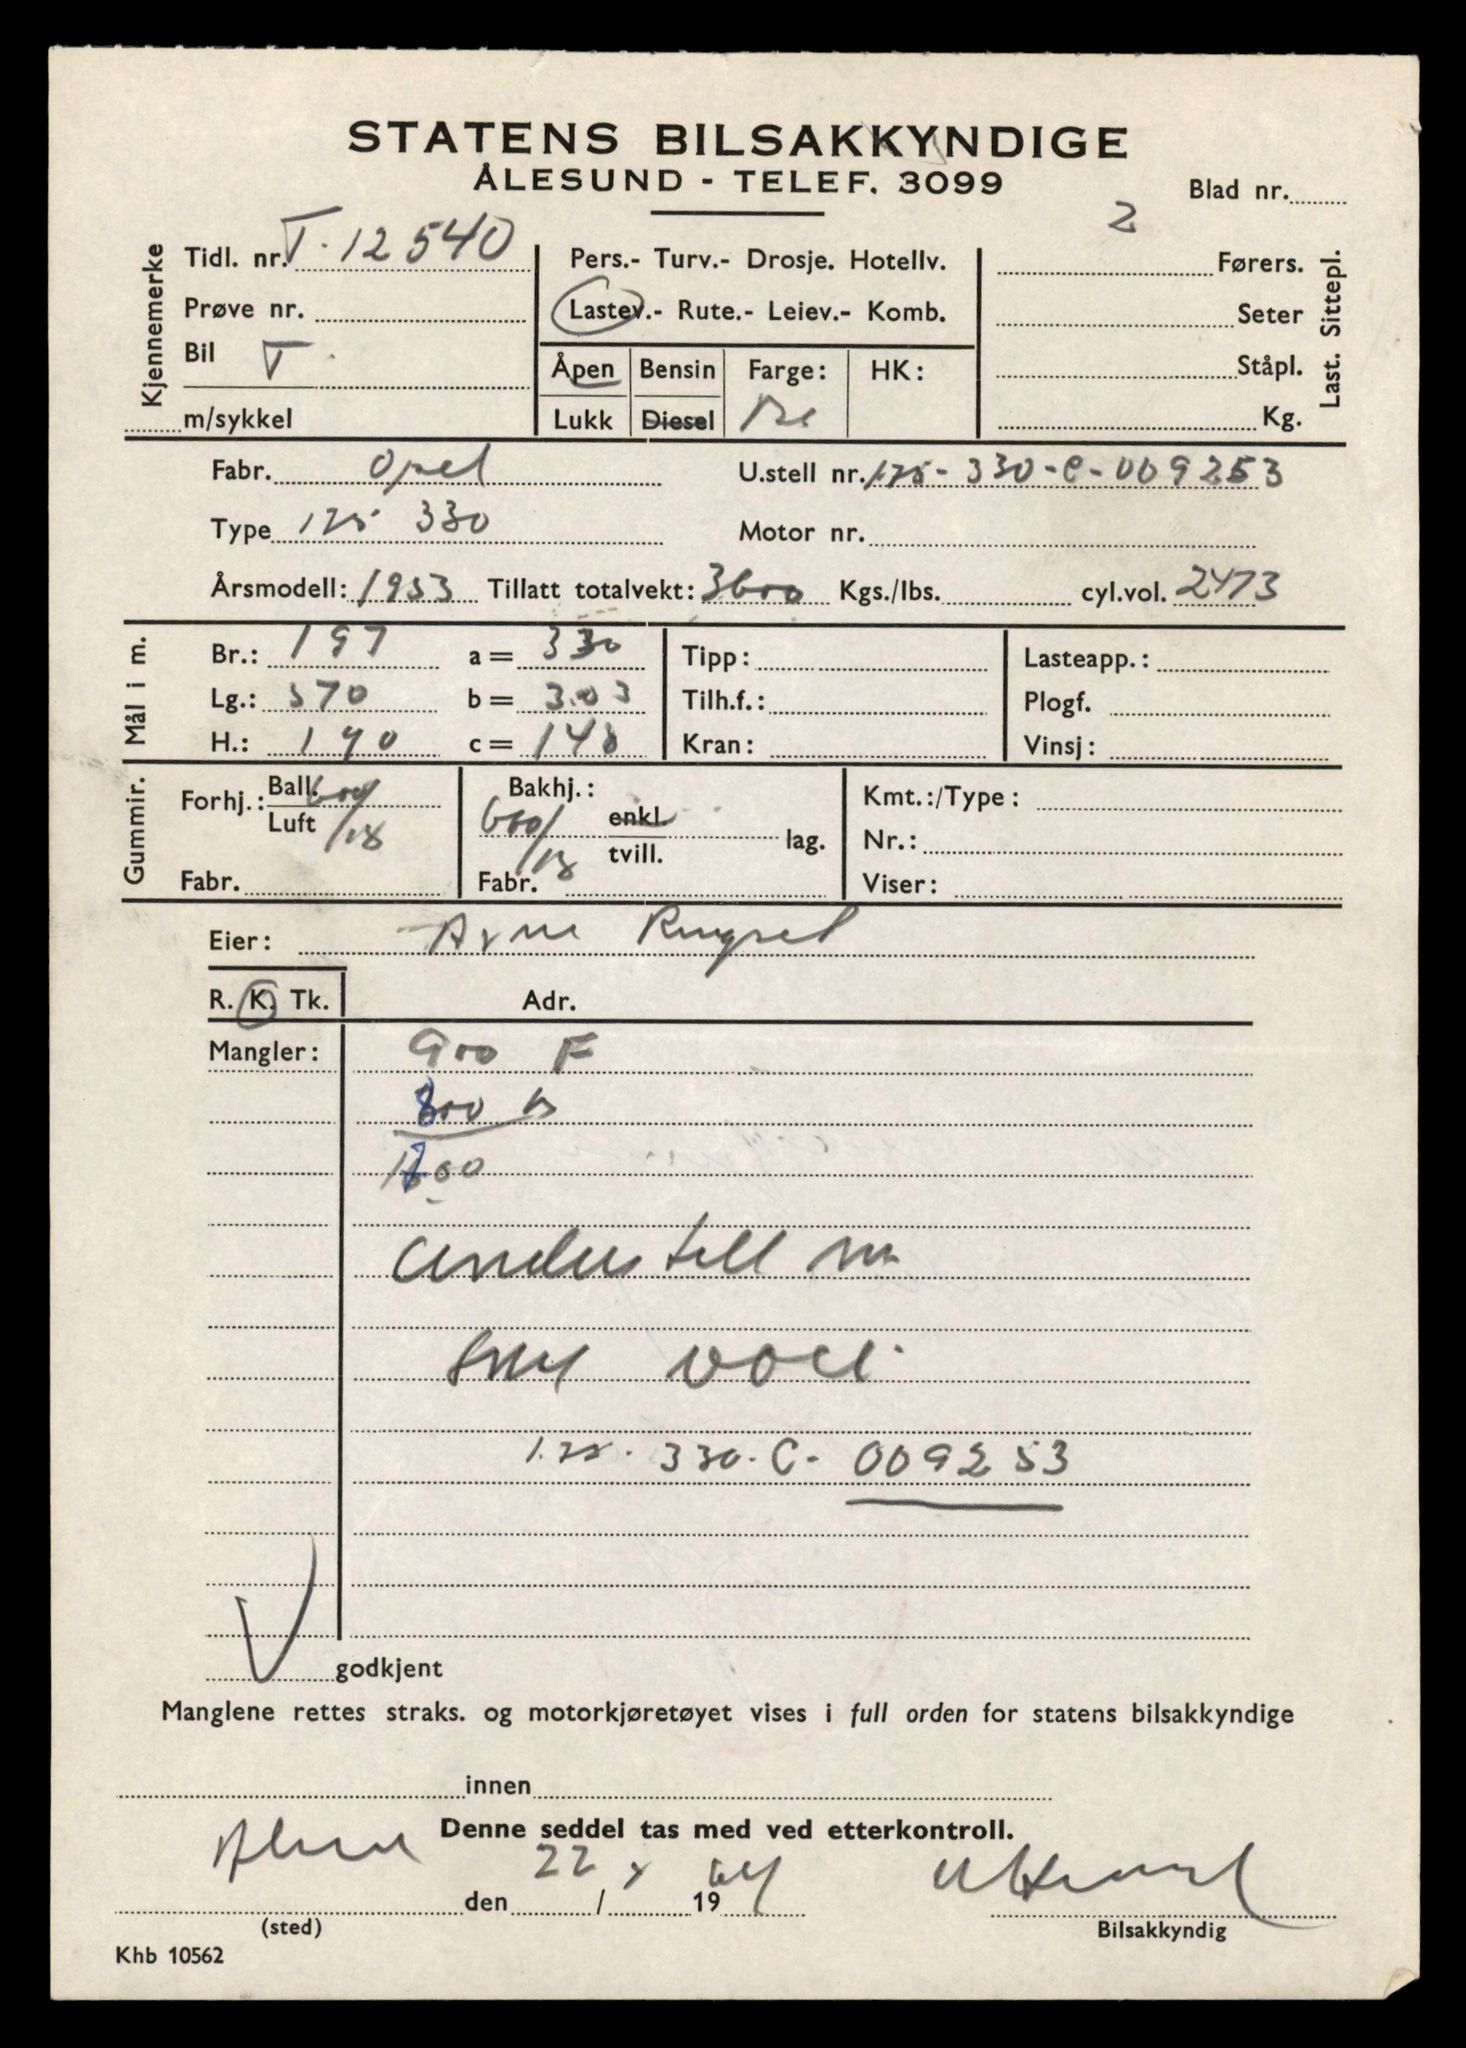 STATENS BILSAKKYNDIGE
ÅLESUND - TELEF. 3099
Blad nr.
Kjennemerke
Tidl. nr. T-12540
Prøve nr.
Bil T
m/sykkel
Pers.- Turv.- Drosje. Hotellv.
Lastev.- Rute.- Leiev.- Komb.
Åpen Bensin Farge: HK:
Lukk Diesel
2 Førers.
Seter
Ståpl.
Kg.
Last. Sittepl.
Fabr. Opel U.stell nr. 1.75-330-C-009253
Type 1.75 330 Motor nr.
Årsmodell: 1953 Tillatt totalvekt: 3600 Kgs./lbs. cyl.vol. 2473
Mål i m.
Br.: 197 a = 330 Tipp: Lasteapp.:
Lg.: 570 b = 303 Tilh.f.: Plogf.
H.: 190 c = 148 Kran: Vinsj:
Gummir.
Forhj.: Ball. 600/18 Luft
Bakhj.: 600/18 enkl. tvill. lag.
Kmt.:/Type:
Nr.:
Fabr. Fabr. Viser:
Eier: Arne
R. K. Tk. Adr.
Mangler: 900 F
800 B
1700
understell nr
1.75-330-C-009253
godkjent
Manglene rettes straks. og motorkjøretøyet vises i full orden for statens bilsakkyndige
innen
Denne seddel tas med ved etterkontroll.
den 22/x 1964
(sted) Bilsakkyndig
Khb 10562